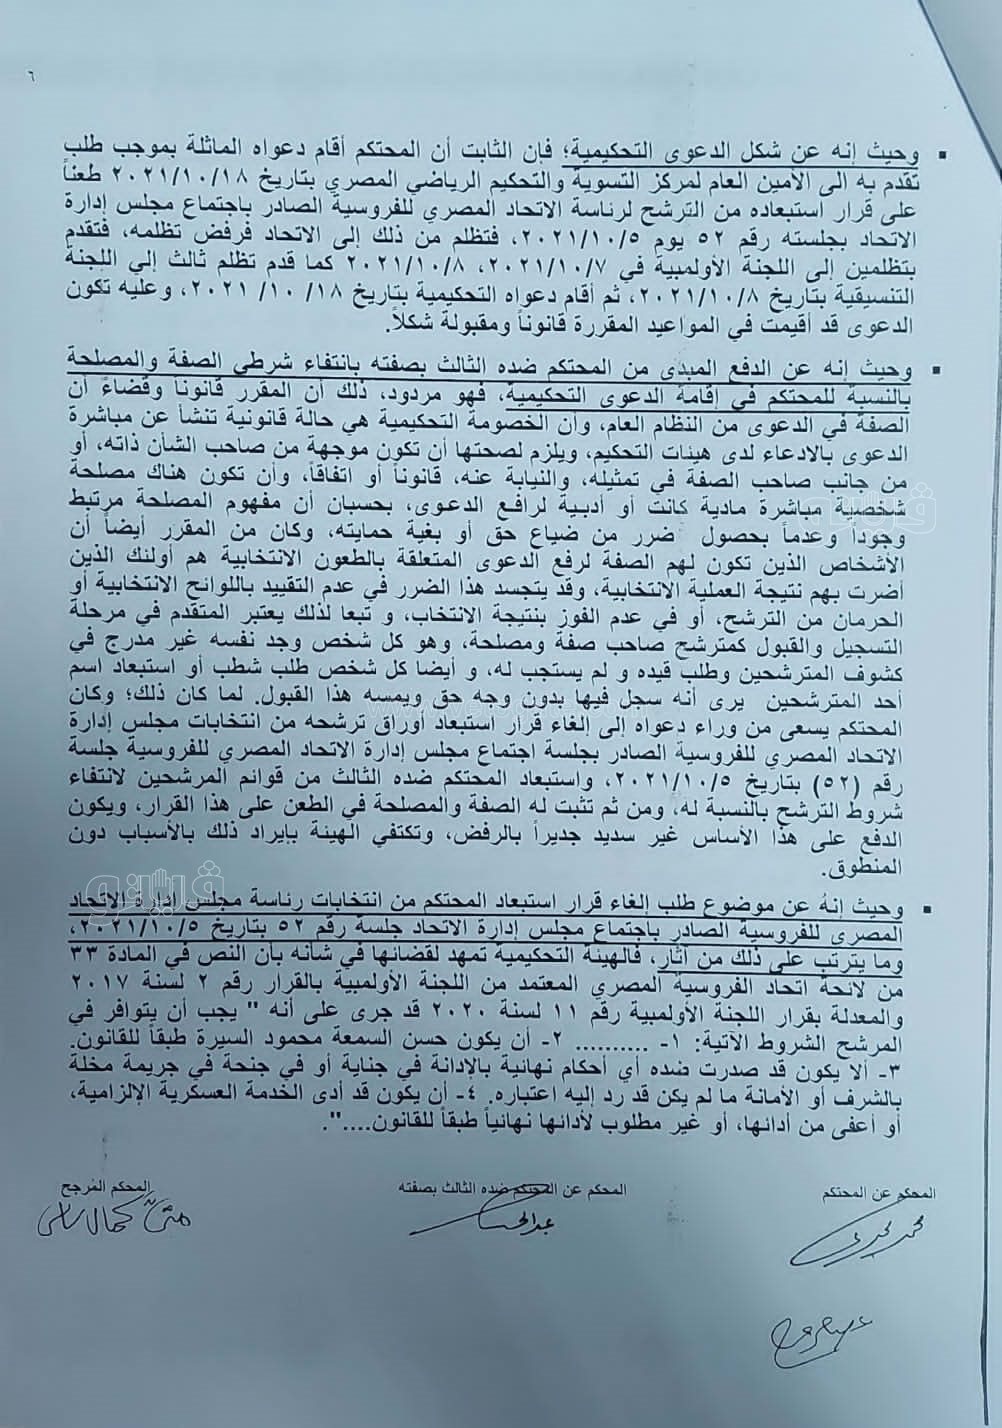 ٦
▪ وحيث إنه عن شكل الدعوى التحكيمية؛ فإن الثابت أن المحتكم أقام دعواه الماثلة بموجب طلب
تقدم به الى الأمين العام لمركز التسوية والتحكيم الرياضي المصري بتاريخ ٢٠٢١/١٠/١٨ طعناً
على قرار استبعاده من الترشح لرئاسة الاتحاد المصري للفروسية الصادر باجتماع مجلس إدارة
الاتحاد بجلسته رقم ٥٢ يوم ٢٠٢١/١٠/٥، فتظلم من ذلك إلى الاتحاد فرفض تظلمه، فتقدم
بتظلمين إلى اللجنة الأولمبية في ٢٠٢١/١٠/٧، ٢٠٢١/١٠/٨ كما قدم تظلم ثالث إلي اللجنة
التنسيقية بتاريخ ٢٠٢١/١٠/٨، ثم أقام دعواه التحكيمية بتاريخ ١٨/ ١٠/ ٢٠٢١، وعليه تكون
الدعوى قد أقيمت في المواعيد المقررة قانوناً ومقبولة شكلاً.
▪ وحيث إنه عن الدفع المبدى من المحتكم ضده الثالث بصفته بانتفاء شرطي الصفة والمصلحة
بالنسبة للمحتكم في إقامة الدعوى التحكيمية، فهو مردود، ذلك أن المقرر قانوناً وقضاءً أن
الصفة في الدعوى من النظام العام، وأن الخصومة التحكيمية هي حالة قانونية تنشأ عن مباشرة
الدعوى بالادعاء لدى هيئات التحكيم، ويلزم لصحتها أن تكون موجهة من صاحب الشأن ذاته، أو
من جانب صاحب الصفة في تمثيله، والنيابة عنه، قانوناً أو اتفاقاً، وأن تكون هناك مصلحة
شخصية مباشرة مادية كانت أو أدبية لرافع الدعوى، بحسبان أن مفهوم المصلحة مرتبط
وجوداً وعدماً بحصول ضرر من ضياع حق أو بغية حمايته، وكان من المقرر أيضاً أن
الأشخاص الذين تكون لهم الصفة لرفع الدعوى المتعلقة بالطعون الانتخابية هم أولئك الذين
أضرت بهم نتيجة العملية الانتخابية، وقد يتجسد هذا الضرر في عدم التقييد باللوائح الانتخابية أو
الحرمان من الترشح، أو في عدم الفوز بنتيجة الانتخاب، و تبعا لذلك يعتبر المتقدم في مرحلة
التسجيل والقبول كمترشح صاحب صفة ومصلحة، وهو كل شخص وجد نفسه غير مدرج في
كشوف المترشحين وطلب قيده و لم يستجب له، و أيضا كل شخص طلب شطب أو استبعاد اسم
أحد المترشحين يرى أنه سجل فيها بدون وجه حق ويمسه هذا القبول. لما كان ذلك؛ وكان
المحتكم يسعى من وراء دعواه إلى إلغاء قرار استبعاد أوراق ترشحه من انتخابات مجلس إدارة
الاتحاد المصري للفروسية الصادر بجلسة اجتماع مجلس إدارة الاتحاد المصري للفروسية جلسة
رقم (٥٢) بتاريخ ٢٠٢١/١٠/٥، واستبعاد المحتكم ضده الثالث من قوائم المرشحين لانتفاء
شروط الترشح بالنسبة له، ومن ثم تثبت له الصفة والمصلحة في الطعن على هذا القرار، ويكون
الدفع على هذا الأساس غير سديد جديراً بالرفض، وتكتفي الهيئة بإيراد ذلك بالأسباب دون
المنطوق.
▪ وحيث إنه عن موضوع طلب إلغاء قرار استبعاد المحتكم من انتخابات رئاسة مجلس إدارة الاتحاد
المصري للفروسية الصادر باجتماع مجلس إدارة الاتحاد جلسة رقم ٥٢ بتاريخ ٢٠٢١/١٠/٥،
وما يترتب على ذلك من آثار، فالهيئة التحكيمية تمهد لقضائها في شأنه بأن النص في المادة ٣٣
من لائحة اتحاد الفروسية المصري المعتمد من اللجنة الأولمبية بالقرار رقم ٢ لسنة ٢٠١٧
والمعدلة بقرار اللجنة الأولمبية رقم ١١ لسنة ٢٠٢٠ قد جرى على أنه " يجب أن يتوافر في
المرشح الشروط الآتية: ١- .......... ٢- أن يكون حسن السمعة محمود السيرة طبقاً للقانون.
٣- ألا يكون قد صدرت ضده أي أحكام نهائية بالإدانة في جناية أو في جنحة في جريمة مخلة
بالشرف أو الأمانة ما لم يكن قد رد إليه اعتباره. ٤- أن يكون قد أدى الخدمة العسكرية الإلزامية،
أو أعفى من أدائها، أو غير مطلوب لأدائها نهائياً طبقاً للقانون....".
المحكم عن المحتكم
المحكم عن المحتكم ضده الثالث بصفته
المحكم المُرجح
فيتو
فيتو